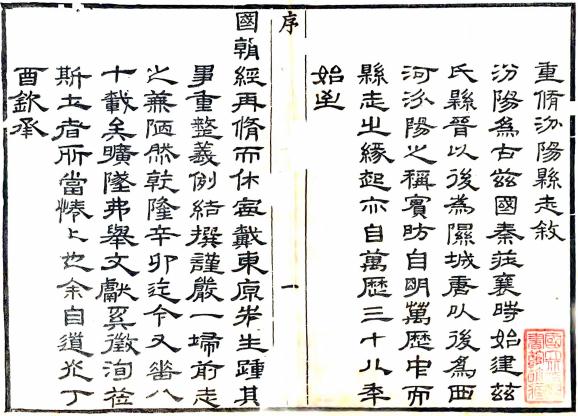 重脩汾陽縣志敘
汾陽為古玆國秦莊襄時始建玆
氏縣晉以後為隰城唐以後為西
河汾陽之稱實昉自明萬歷中而
縣志之緣起亦自萬歷三十八年
始也
序
一
國朝經再脩而休寧戴東原先生踵其
事重整義例結撰謹嚴一埽前志
之兼陋然乾隆辛卯迄今又八
十載矣曠墜弗舉文獻奚徵洵莅
斯土者所當惓惓也余自道光丁
酉欽承